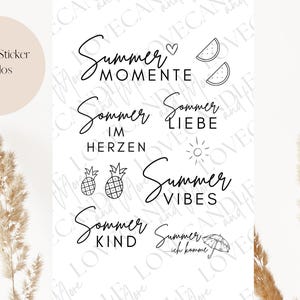 Sticker
los
Summer
MOMENTE
Sommer
IM
HERZEN
Sommer
LIEBE
Summer
VIBES
Sommer
KIND
Summer
ich komme